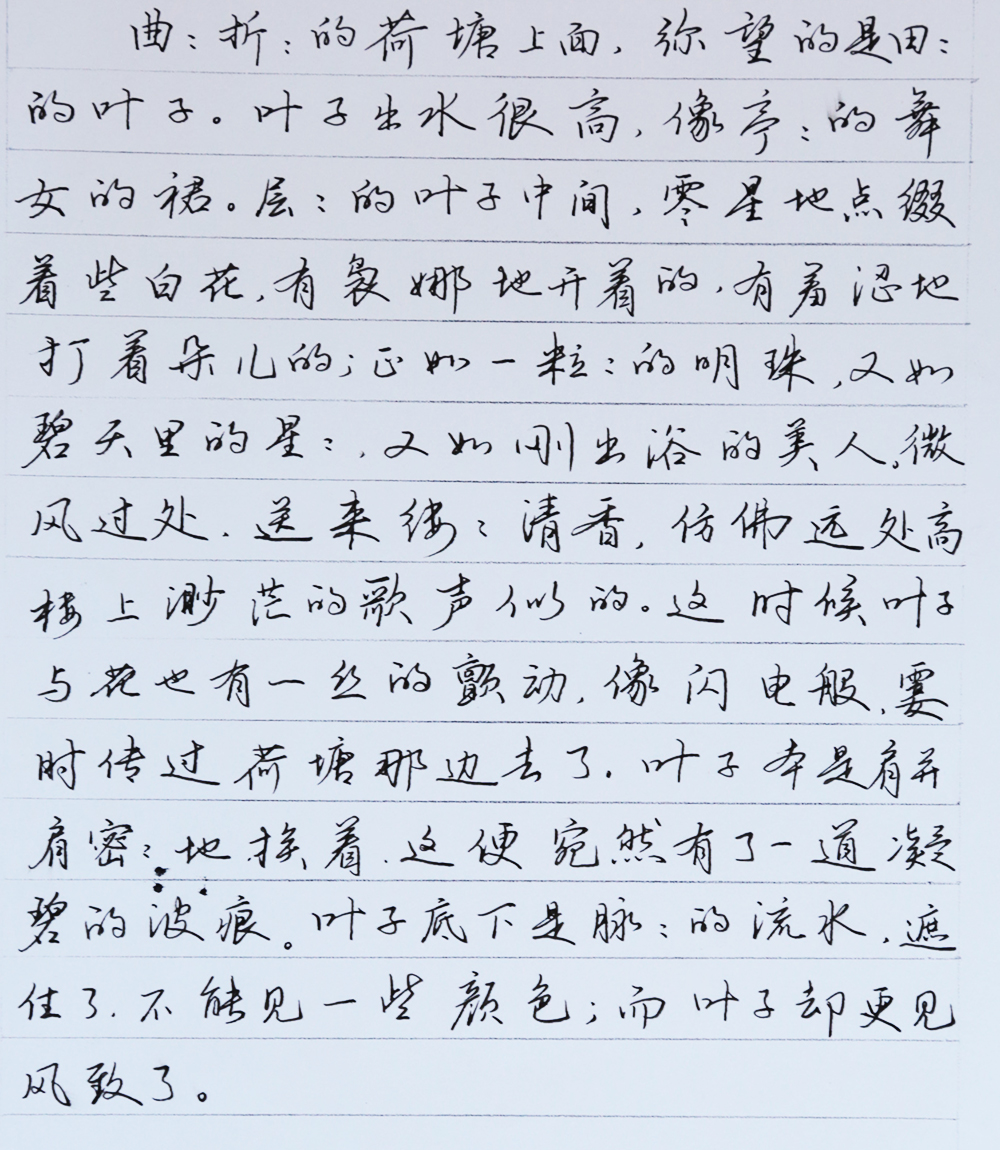 曲：折：的荷塘上面，弥望的是田：
的叶子。叶子出水很高，像亭：的舞
女的裙。层：的叶子中间，零星地点缀
着些白花，有袅娜地开着的，有羞涩地
打着朵儿的；正如一粒：的明珠，又如
碧天里的星：，又如刚出浴的美人。微
风过处，送来缕：清香，仿佛远处高
楼上渺茫的歌声似的。这时候叶子
与花也有一丝的颤动，像闪电般，霎
时传过荷塘那边去了。叶子本是肩并
肩密：地挨着，这便宛然有了一道凝
碧的波痕。叶子底下是脉：的流水，遮
住了，不能见一些颜色；而叶子却更见
风致了。